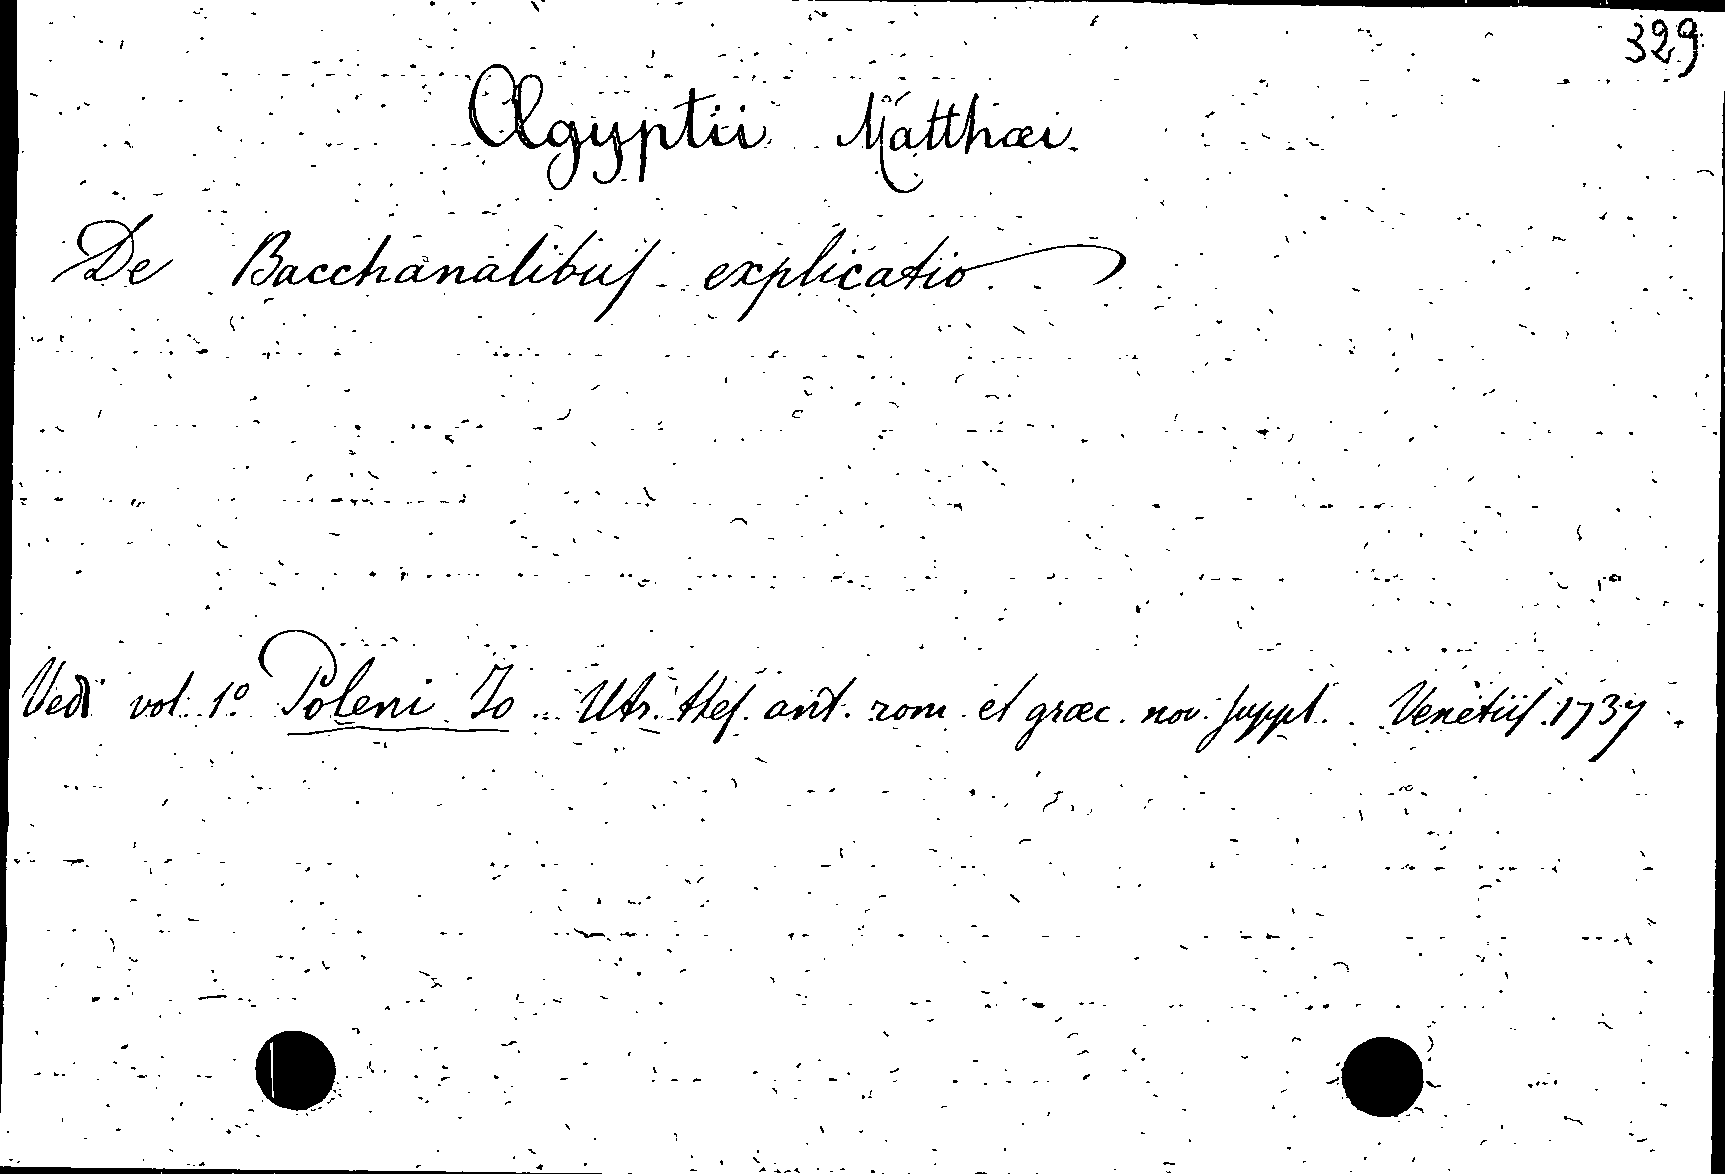 329
Ægyptii Matthæi.
De Bacchanalibus explicatio
Vedi vol. 1º Poleni Jo. Utr. thes. ant. rom. et græc. nov. suppl. Venetiis 1737